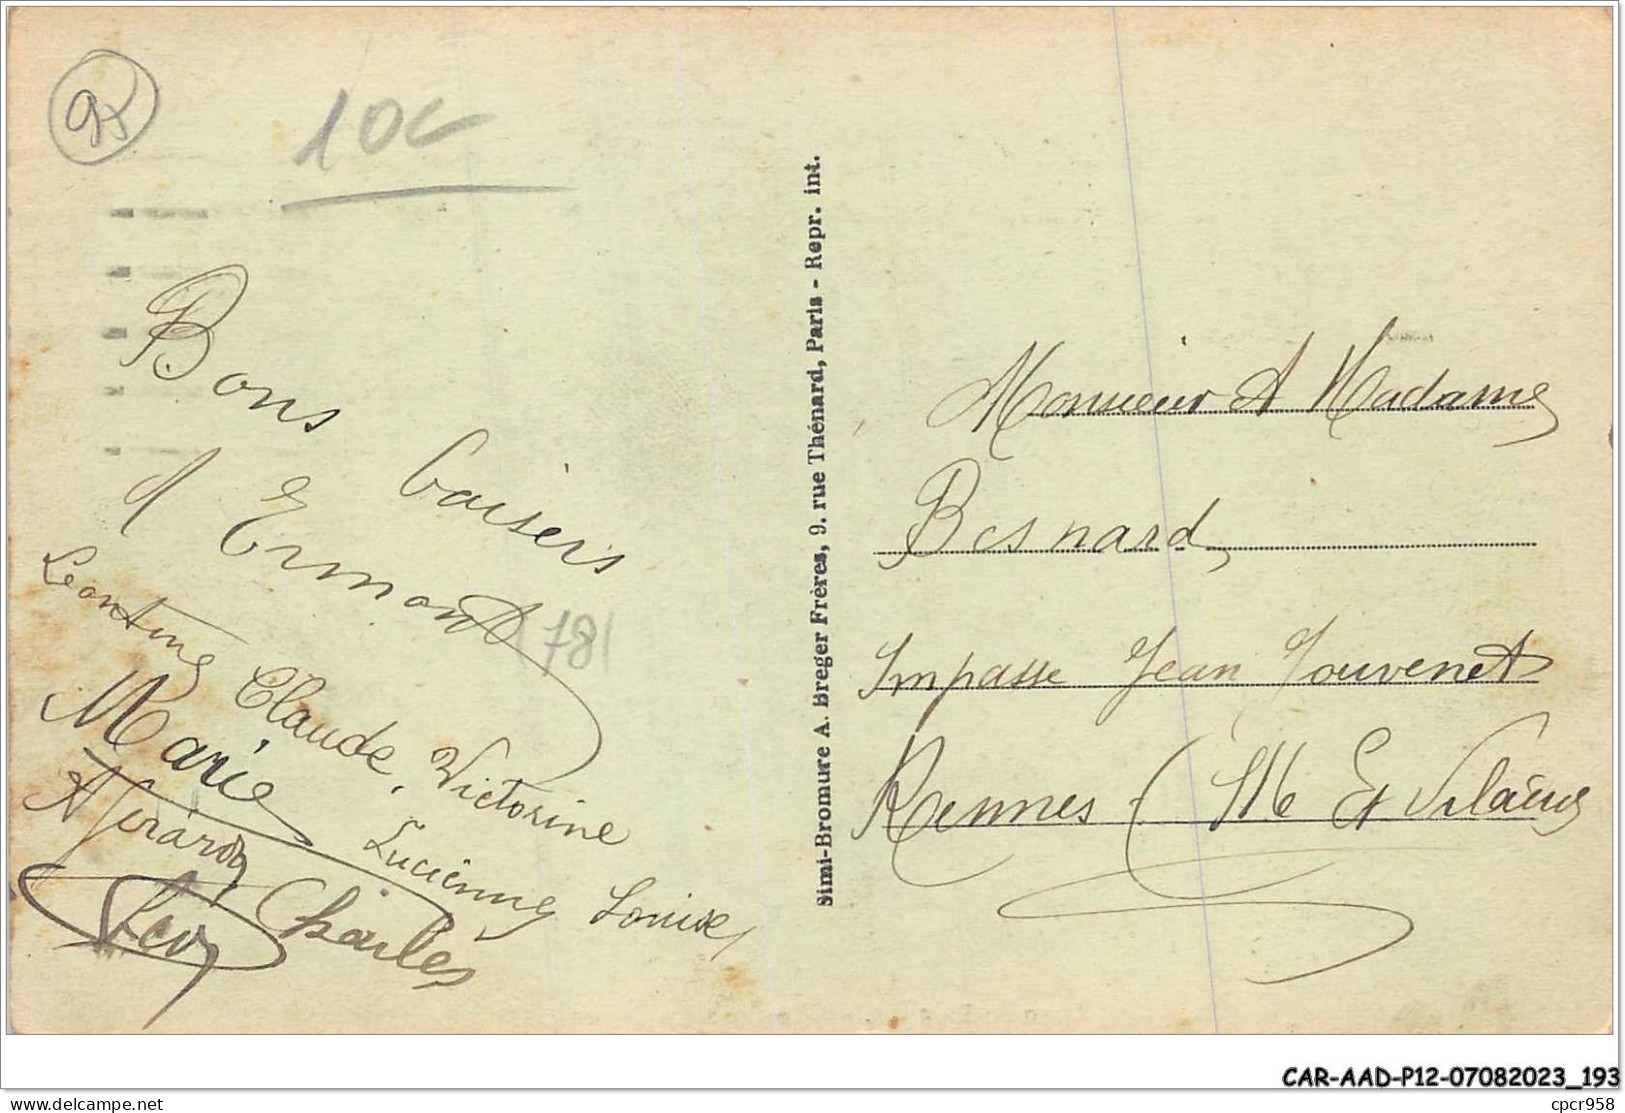 95
10c
Bons
baisers
d'Ermont
78
Leontine Claude, Victorine
Marie Lucienne Louise
A Gérard
Léon Charles
Simi-Bromure A. Breger Frères, 9. rue Thénard, Paris - Repr. int.
Monsieur et Madame
Besnard,
Impasse Jean Jouvenet
Rennes (Ille Et Vilaine
CAR-AAD-P12-07082023_193
www.delcampe.net
cpcr958